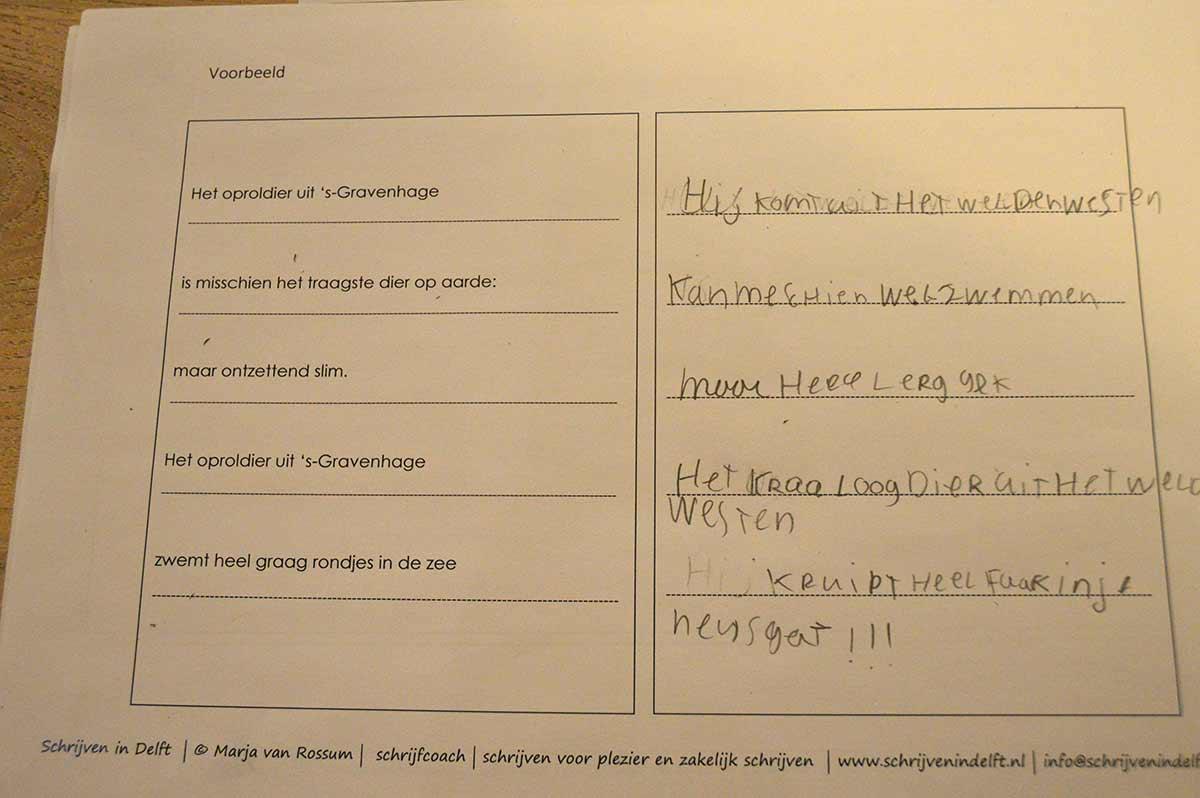 Voorbeeld
Het oproldier uit ‘s-Gravenhage
is misschien het traagste dier op aarde:
maar ontzettend slim.
Het oproldier uit ‘s-Gravenhage
zwemt heel graag rondjes in de zee
Hij komt uit Het weLDenwesten
Kan meschien weL zwemmen
maar HeeeL erg gek
Het kraaLoogDier uit Het weLd
westen
Hij kruipt HeeL faak in je
neusgat!!!
Schrijven in Delft | © Marja van Rossum | schrijfcoach | schrijven voor plezier en zakelijk schrijven | www.schrijvenindelft.nl | info@schrijvenindelf